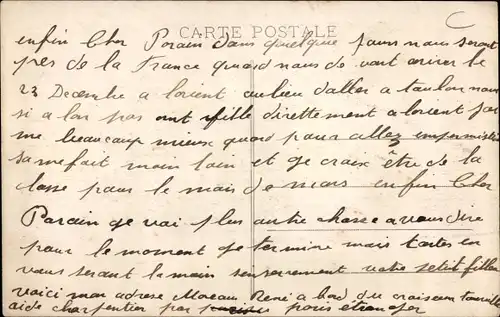 CARTE POSTALE
enfin Cher Parain dans quelque jours nous seront
pres de la France quand nous de vont ariver le
23 Decembre a lorient au lieu daller a toulon nous
si a lon pas ont fille direttement a lorient
me beaucoup mieux quand pour allez
sa me fait moin loin et ge crois être de la
classe pour le mois de mars enfin Cher
Parain ge vai plus autre chose a vous dire
pour le moment ge termine mais toutes en
vous serant la main serrement votre petit filleu
voici mon adresse Moreau René a bord du croiseur
aide charpentier par